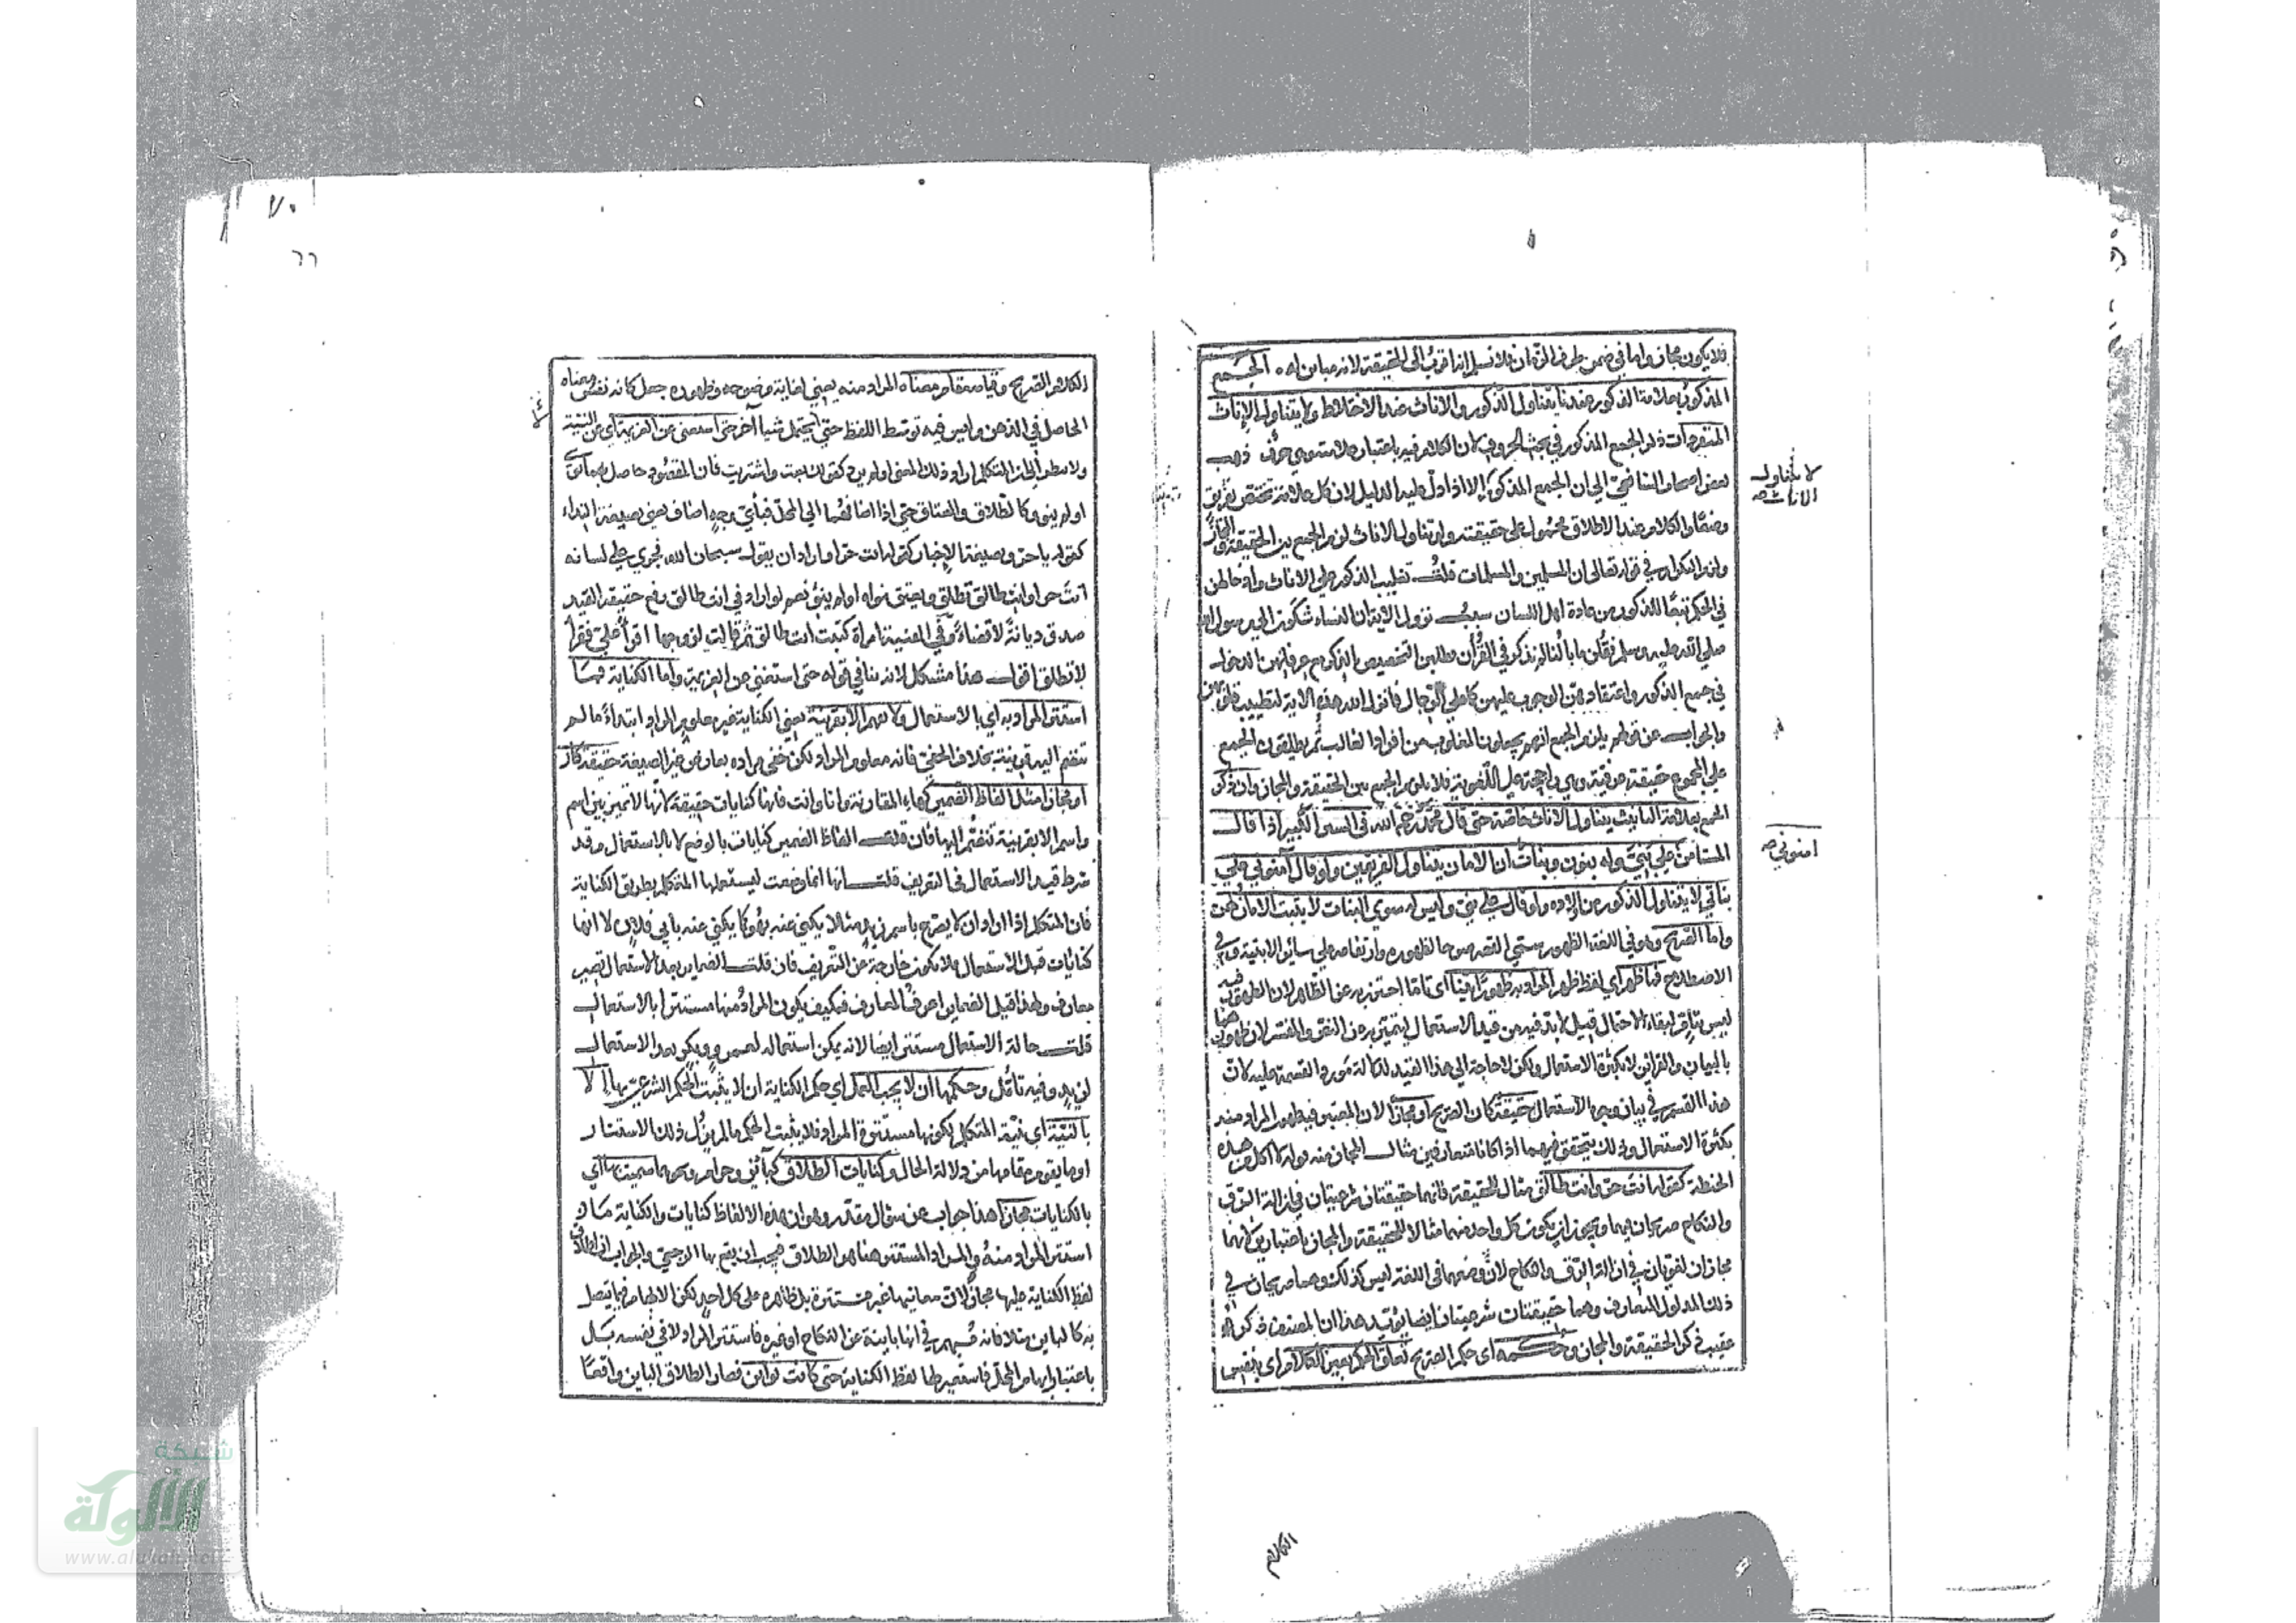 فلا يكون مجاز واما في ضمن طرفا لزمان فلانسلم انه اقرب الى الحقيقة لانه مباين له الجمع
المذكور بعلامة الذكور عندنا يتناول الذكور والاناث عند الاختلاط ولا يتناول الاناث
المنفردات ذكر الجمع المذكور في بحث الحروف لان الكلام فيه باعتبار علامته وهي حرف ذهب
بعض اصحاب الشافعي الى ان الجمع المذكور الا اذا دل عليه الدليل لان كل علامة تختص بفريق
وضعا والكلام عند الاطلاق محمول على حقيقته ولو تناول الاناث لزم الجمع بين الحقيقة والمجاز
ولزم التكرار في قوله تعالى ان المسلمين والمسلمات قلت تغليب الذكور على الاناث وادخالهن
في الحكم تبعا للذكور من عادة اهل اللسان سبب نزول الاية ان النساء شكون الى رسول الله
صلى الله عليه وسلم فقلن ما بالنا لم نذكر في القرأن مطلبهن التخصيص بالذكر مع عرفانهن الدخول
في جمع الذكور واعتقادهن الوجوب عليهن كما على الرجال فانزل الله هذه الاية لتطييب قلوبهن
والجواب عن قولهم يلزم الجمع انهم يجعلون المغلوب من افراد الغالب ثم يطلقون الجمع
على المجموع حقيقة عرفية وهي راجحة على اللغوية فلا يلزم الجمع بين الحقيقة والمجاز وان ذكر
الجمع بعلامة التانيث يتناول الاناث خاصة حتى قال محمد رحمه الله في السير الكبير اذا قال
المستامن على بني وله بنون وبنات ان الامان يتناول الفريقين ولو قال آمنوني على
بناتي لا يتناول الذكور من اولاده ولو قال على بني وليس له سوى البنات لا يثبت الامان لهن
واما الصريح وهو في اللغة الظهور سمي القصر صرحا لظهوره وارتفاعه على سائر الابنية وفي
الاصطلاح فما ظهر اي لفظ ظهر المراد به ظهورا بينا اى تاما احترز به عن الظاهر لان الظهور فيه
ليس بتام لبقاء الاحتمال قيل لا بد فيه من قيد الاستعمال ليتميز به عن النص والمفسر لان ظهورهما
بالبيان والقراين لا بكثرة الاستعمال ولكن لا حاجة الى هذا القيد لدلالة مورد القسمة عليه لان
هذا القسم في بيان وجوه الاستعمال حقيقة كان الصريح او مجازا لان المعتبر فيه ظهور المراد منه
بكثرة الاستعمال وذلك يتحقق فيهما اذا كانا متعارفين مثال المجاز منه قوله لا اكل من هذه
الحنطة كقوله انت حر وانت طالق مثال للحقيقة فانهما حقيقتان شرعيتان في ازالة الرق
والنكاح صريحان فيهما ويجوز ان يكون كل واحد منهما مثالا للحقيقة والمجاز باعتبارين لانهما
مجازان لغويان في ازالة الرق والنكاح لان وضعهما في اللغة ليس كذلك وهما صريحان في
ذلك المدلول المتعارف وهما حقيقتان شرعيتان ايضا يؤيد هذا ان المصنف ذكره
عقيب ذكر الحقيقة والمجاز وحكمه اى حكم الصريح تعلق الحكم بعين الكلام اى بنفس
لا يتناول
الاناث صح
امنوني صح
الكلام
٧٠
٦٦
الكلام الصريح وقيامه مقام معناه المراد منه يعني لغاية وضوحه وظهوره جعل كانه نفس معناه
الحاصل في الذهن وليس فيه توسط اللفظ حتى يحتمل شيا آخر حتى استغنى عن العزيمة اي عن النية
ولا ينظر الى ان المتكلم اراد ذلك المعنى او لم يرد كقولك بعت واشتريت فان المقصود حاصل بهما نوى
او لم ينو وكالطلاق والعتاق حتى اذا اضافهما الى المحل فبأي وجه اضاف يعني صيغة النداء
كقوله يا حر وصيغة الاخبار كقوله انت حر او اراد ان يقول سبحان الله فجرى على لسانه
انت حر او انت طالق تطلق ويعتق نواه او لم ينو نعم لو اراد في انت طالق رفع حقيقة القيد
صدق ديانة لا قضاء وفي القنية امراة كتبت انت طالق ثم قالت لزوجها اقرأ علي فقرأ
لا تطلق اقول هذا مشكل لانه ينافي قوله حتى استغنى عن العزيمة واما الكناية فما
استتر المراد به اي بالاستعمال ولا يفهم الا بقرينة يعني الكناية غير معلوم المراد ابتداء ما لم
تنضم اليه قرينة بخلاف الخفي فانه معلوم المراد لكن خفي مراده بعارض غير الصيغة حقيقة كان
او مجازا مثل الفاظ الضمير كهاء المغايبة وانا وانت فانها كنايات حقيقة لانها لا تميز بين اسم
واسم الا بقرينة تنضم اليها فان قلت الفاظ الضمير كنايات بالوضع لا بالاستعمال وقد
شرط قيد الاستعمال في التعريف قلت انها انما وضعت ليستعملها المتكلم بطريق الكناية
فان المتكلم اذا اراد ان لا يصرح باسم زيد مثلا يكني عنه بهو كما يكني عنه بابي فلان لا انها
كنايات قبل الاستعمال فلا تكون خارجة عن التعريف فان قلت الضماير بعد الاستعمال تصير
معارف ولهذا قيل الضماير اعرف المعارف فكيف يكون المراد منها مستترا بالاستعمال
قلت حالة الاستعمال مستتر ايضا لانه يمكن استعماله لعمرو وبكر بعد الاستعمال
لزيد وفيه تأمل وحكمها ان لا يجب العمل اي حكم الكناية ان لا يثبت الحكم الشرعي بها الا
بالنية اى نية المتكلم لكونها مستترة المراد فلا يثبت الحكم ما لم يزل ذلك الاستتار
او ما يقوم مقامها من دلالة الحال وكنايات الطلاق كبائن وحرام ونحوهما سميت بها اي
بالكنايات مجازا هذا جواب عن سؤال مقدر وهو ان هذه الالفاظ كنايات والكناية ما
استتر المراد منه والمراد المستتر هنا هو الطلاق فيجب ان يقع بها الرجعي والجواب ان اطلاق
لفظ الكناية عليها مجاز لان معانيها غير مستترة بل ظاهره على كل احد لكن الابهام فيما يتصل
به كالباين مثلا فانه مبهم في انها باينة عن النكاح او غيره فاستتر المراد لا في نفسه بل
باعتبار ابهام المحل فاستعير لها لفظ الكناية حتى كانت بواين فصار الطلاق الباين واقعا
شبكة
الألوكة
www.alukah.net